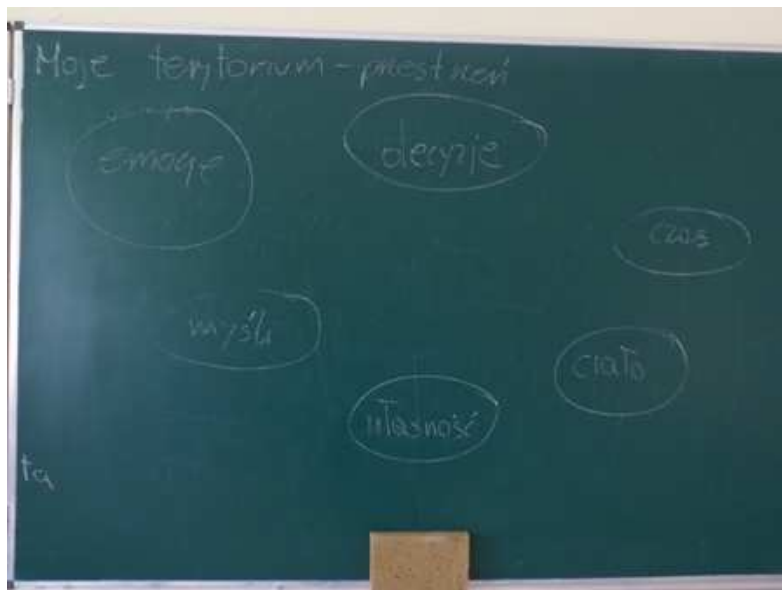 Moje terytorium - przestrzeń
emocje
decyzje
czas
myśli
ciało
własność
ta